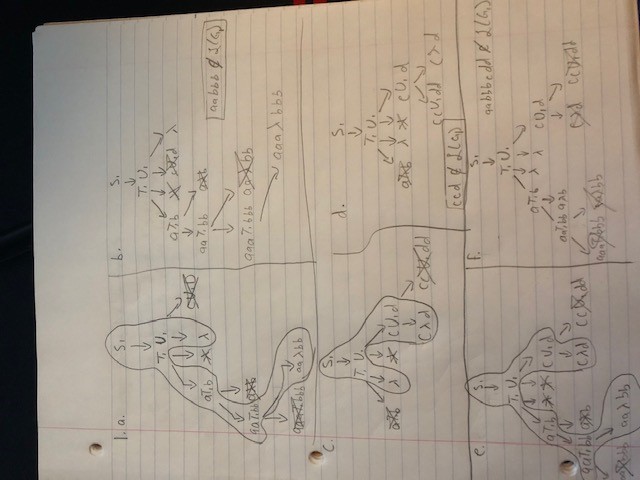 1. a.
S₁
T₁ U₁
aT₁b λ λ
aaT₁bb aλb
aaaT₁bbb aaλbb
b.
S₁
T₁ U₁
aT₁b λ cU₁d λ
aaT₁bb aλb
aaaT₁bbb aaλbb
aaaλbbb
aabbb ∉ L(G₁)
c.
S₁
T₁ U₁
aT₁b λ λ cU₁d
cλd ccU₁dd
d.
S₁
T₁ U₁
aT₁b λ λ cU₁d
ccU₁dd cλd
ccd ∉ L(G₁)
e.
S₁
T₁ U₁
aT₁b λ λ cU₁d
aaT₁bb aλb cλd ccU₁dd
aaλbb
f.
aabbbcdd ∉ L(G₁)
S₁
T₁ U₁
aT₁b λ λ cU₁d
aaT₁bb aλb cλd ccU₁dd
aaaT₁bbb aaλbb